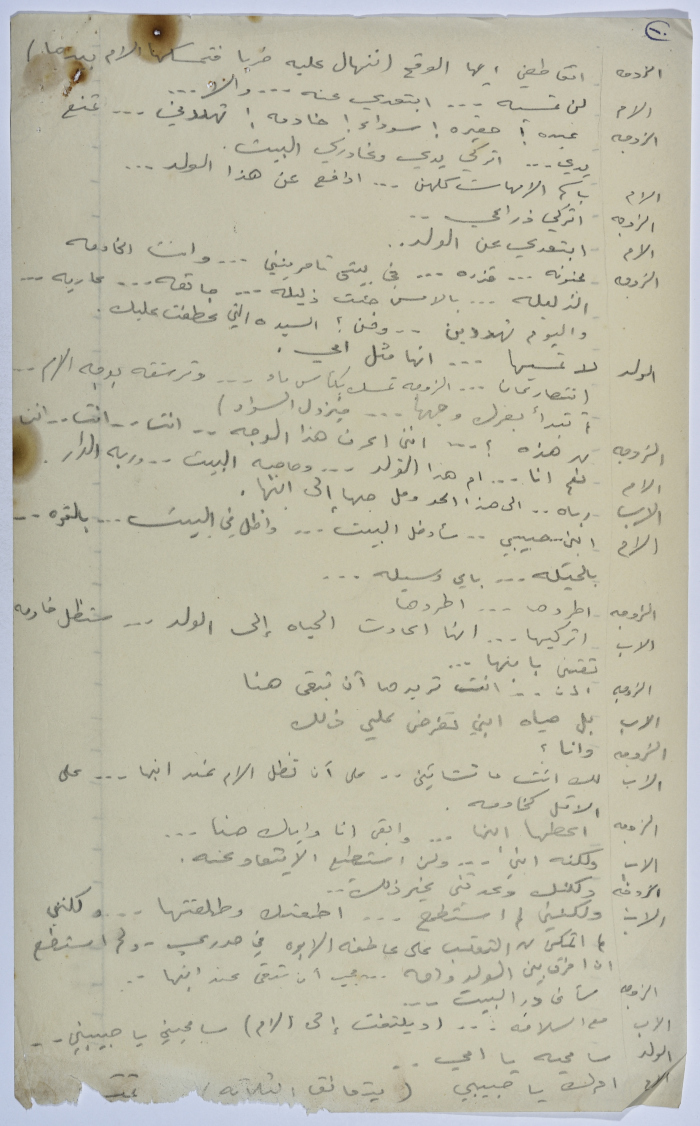 ١٠
الزوجه اتقاطعيني ايها الوقح (تنهال عليه ضربا فتمسكها الام بيدها)
الام لن تمسيه --- ابتعدي عنه --- والا ...
الزوجه عبده ! حقيره ! سوداء ! خادمه ! تهددني --- تمنع
يدي --- اتركي يدي وغادري البيت .
الام باسم الامهات كلهن --- ادافع عن هذا الولد ...
الزوجه اتركي ذراعي --
الام ابتعدي عن الولد ..
الزوجه مجنونه --- قذره --- في بيتي تامرينني --- وانت الخادمه
الذليله --- بالامس جئت ذليله --- جائعه --- عاريه ---
واليوم تهددين -- ومن ؟ السيده التي عطفت عليك .
الولد لا تمسيها --- انها مثل امي .
انتصار تمان --- الزوجه تمسك بكأس ماء --- وترشقه بوجه الام --
تبدأ بفرك وجهها --- فيزول السواد )
الزوجه من هذه ؟ --- انني اعرف هذا الوجه -- انت -- انت -- انت
الام نعم انا --- ام هذا الولد --- وصاحبه البيت -- وربه الدار .
الاب رباه .. الى هذا الحد وصل حبها إلى ابنها .
الام ابني حبيبي -- سأدخل البيت --- واظل في البيت --- بالقوه --
بالحيله --- باي وسيله ---
الزوجه اطردها --- اطردها
الاب اتركيها --- انها اعادت الحياه إلى الولد --- ستظل خادمه
تعتني بابنها ---
الزوجه اذن -- انت تريدها أن تبقى هنا
الاب بل حياه ابني تفرض علي ذلك
الزوجه وانا ؟
الاب لك انت ما تشائين -- على أن تظل الام عند ابنها --- على
الاقل كخادمه .
الزوجه اعطها ابنها --- وابقى انا واياك هنا ---
الاب ولكنه ابني --- ولن استطيع الابتعاد عنه .
الزوجه ولكنك وعدتني بغير ذلك --
الاب ولكنني لم استطع --- اطعتك وطلقتها --- ولكنني
لم اتمكن من التغلب على عاطفه الابوه في صدري -- ولم استطع
ان افرق بين الولد وامه --- يجب ان تبقى عند ابنها --
الزوجه سأغادر البيت --
الاب مع السلامه --- (ويلتفت إلى الام) سامحيني يا حبيبتي --
الولد سامحيه يا امي --
الام امرك يا حبيبي ( يتعانق الثلاثه ) تمت